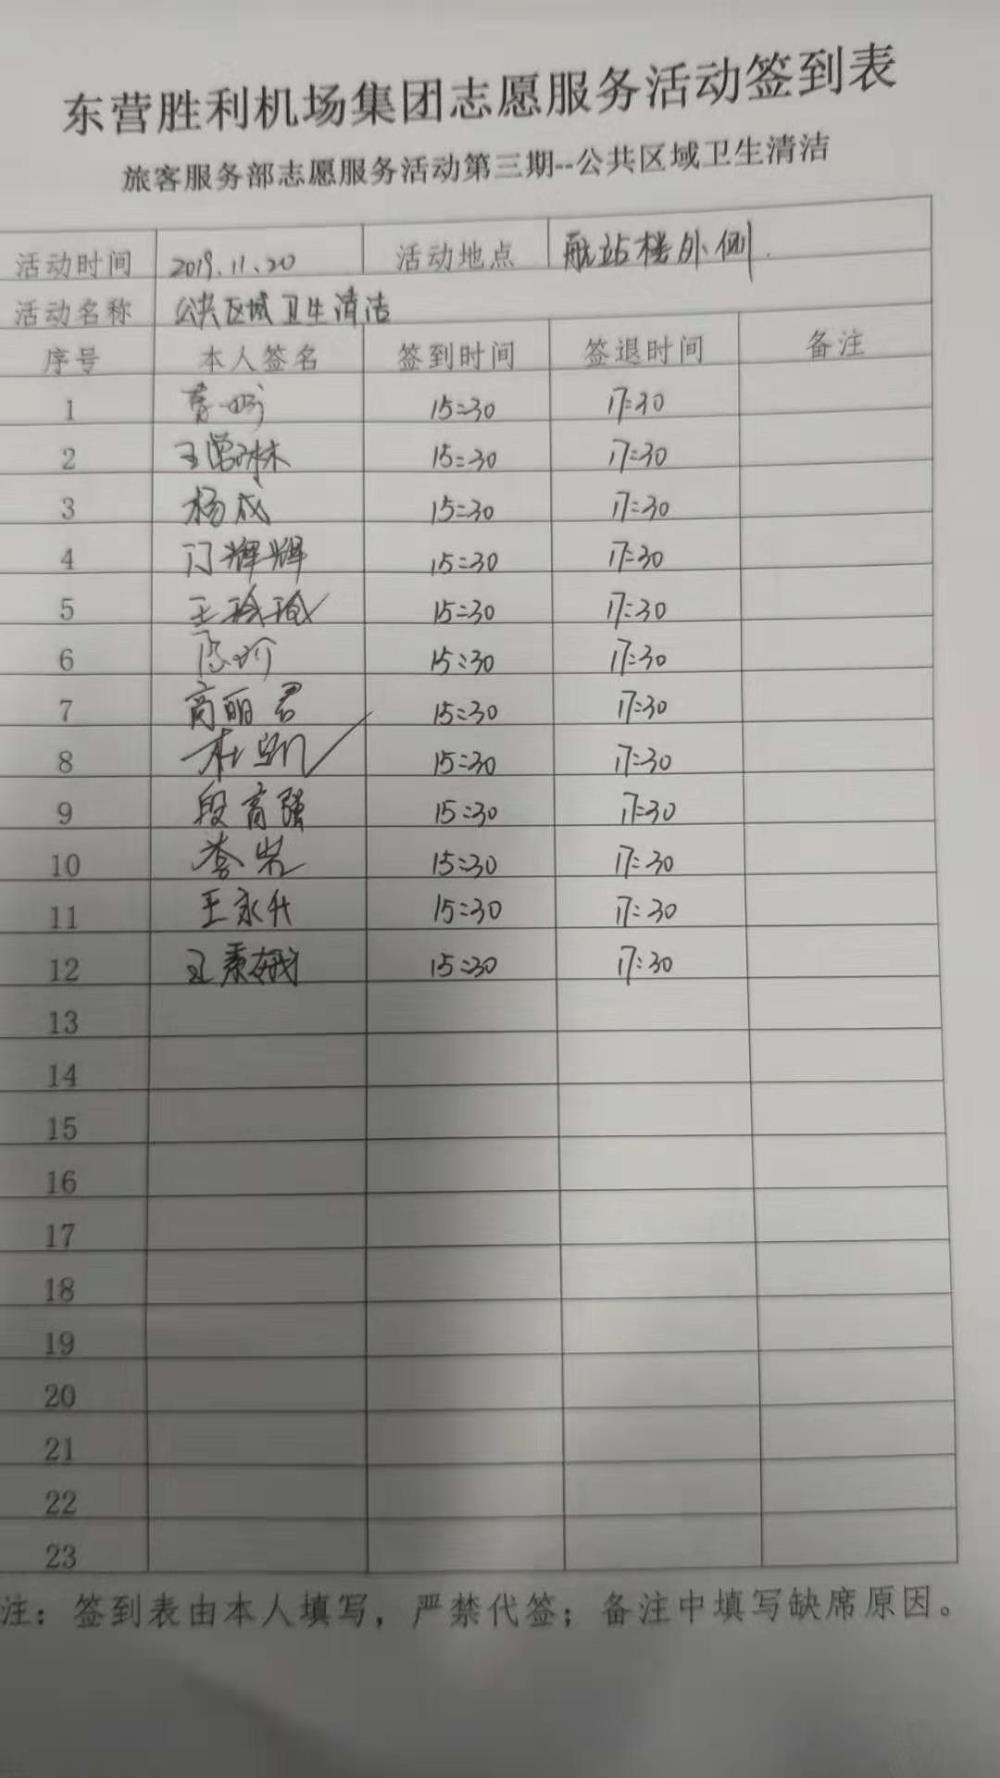 东营胜利机场集团志愿服务活动签到表
旅客服务部志愿服务活动第三期--公共区域卫生清洁
活动时间 2019.11.20 活动地点 航站楼外侧.
活动名称 公共区域卫生清洁
序号 本人签名 签到时间 签退时间 备注
1 15:30 17:30
2 15:30 17:30
3 杨成 15:30 17:30
4 门辉辉 15:30 17:30
5 15:30 17:30
6 15:30 17:30
7 商丽君 15:30 17:30
8 杜凯 15:30 17:30
9 段高强 15:30 17:30
10 李岩 15:30 17:30
11 王永升 15:30 17:30
12 王秉娥 15:30 17:30
13
14
15
16
17
18
19
20
21
22
23
注：签到表由本人填写，严禁代签；备注中填写缺席原因。